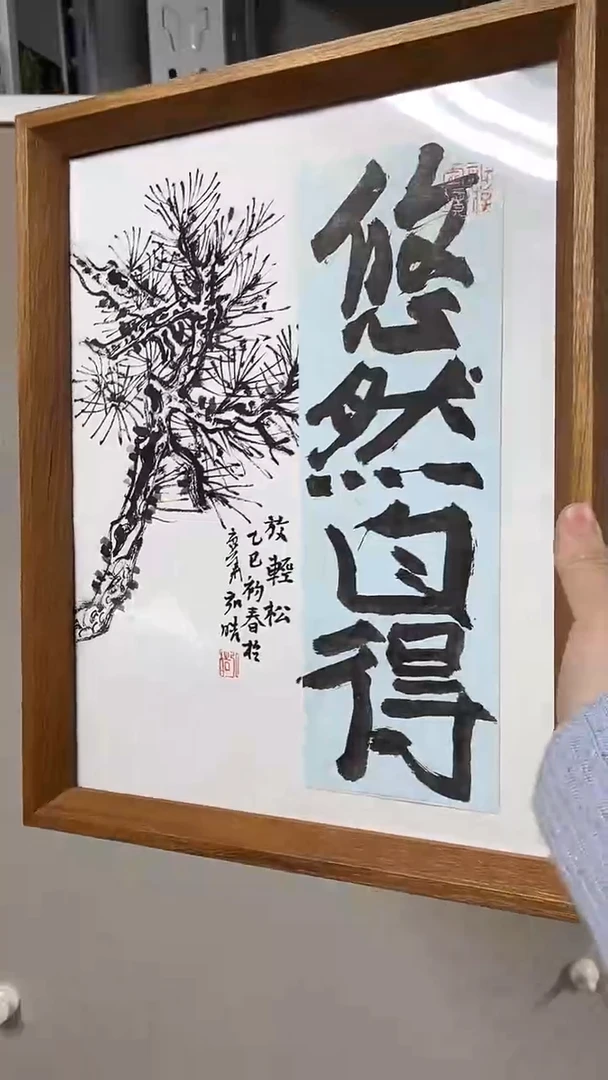 悠然自得
放輕松
乙巳初春於
京華弘皓